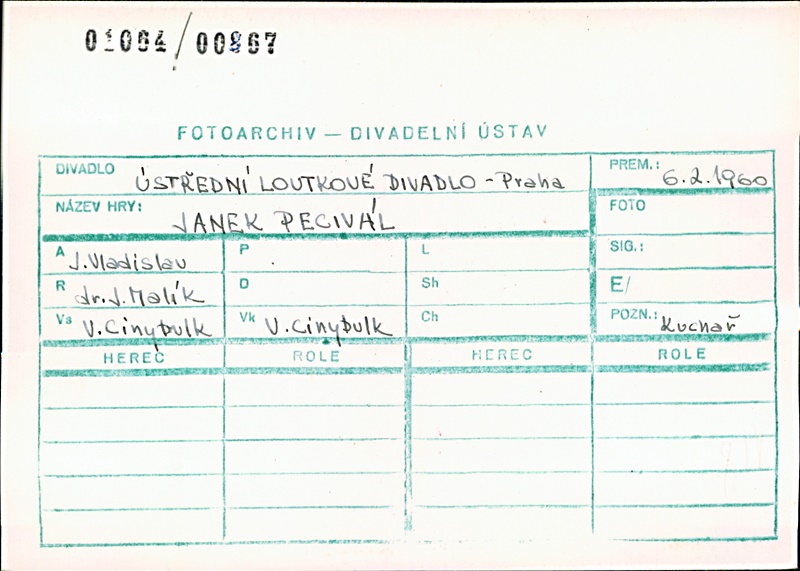 01064/00867
FOTOARCHIV — DIVADELNÍ ÚSTAV
DIVADLO ÚSTŘEDNÍ LOUTKOVÉ DIVADLO - Praha
PREM.: 6.2.1960
NÁZEV HRY: JANEK PECIVÁL
FOTO
A J. Vladislav P L SIG.:
R dr. J. Malík D Sh E/
Vs V. Cinybulk Vk V. Cinybulk Ch POZN.: Kuchař
HEREC ROLE HEREC ROLE